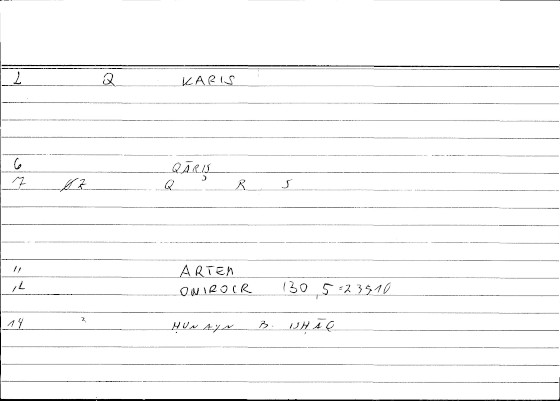 L Q KARIS
6 QĀRIS
7 07 Q R S
" ARTEM
12 ONIROCR 130,5=23910
14 2 ḤUNAYN B. ISḤĀQ